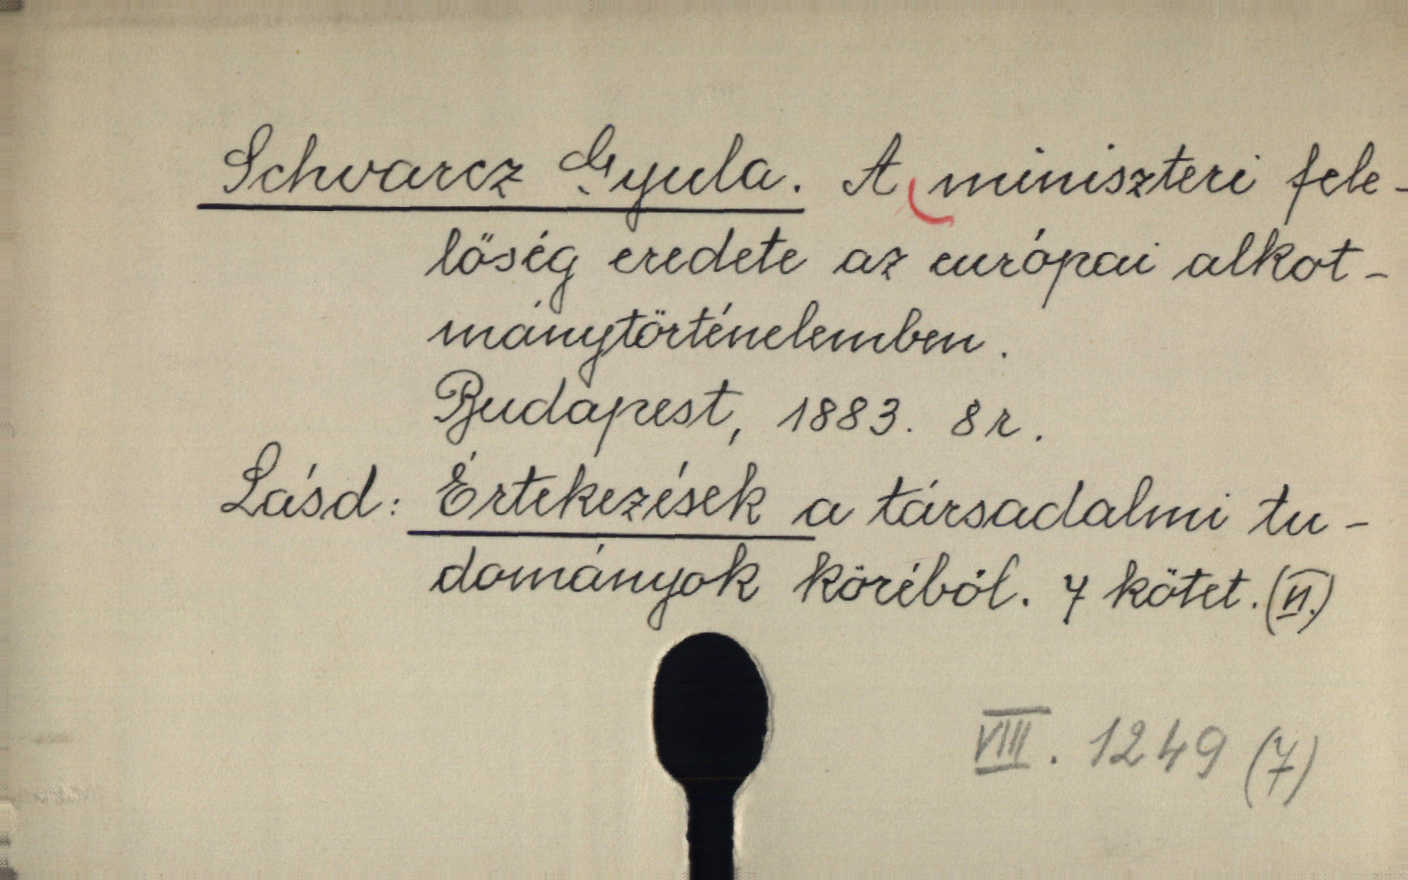 Schvarcz Gyula. A miniszteri fele-
lőség eredete az európai alkot-
mánytörténelemben.
Budapest, 1883. 8r.
Lásd: Értekezések a társadalmi tu-
dományok köréből. 7 kötet. (VI.)
VIII. 1249 (7)